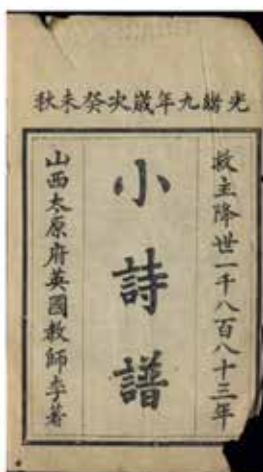 光緒九年歲次癸未秋
救主降世一千八百八十三年
小詩譜
山西太原府英國教師李著